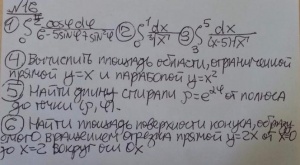 №16
1) ∫₀^{π/2} cosφdφ / 6-5sinφ+sin²φ 2) ∫₀¹ dx / ³√x² 3) ∫₃⁵ dx / (x-5)√x²
4) Вычислить площадь области, ограниченной
прямой y=x и параболой y=x²
5) Найти длину спирали ρ=e^{2φ} от полюса
до точки (ρ,φ).
6) Найти площадь поверхности конуса, образу
емого вращением отрезка прямой y=2x от x=0
до x=2 вокруг оси 0x